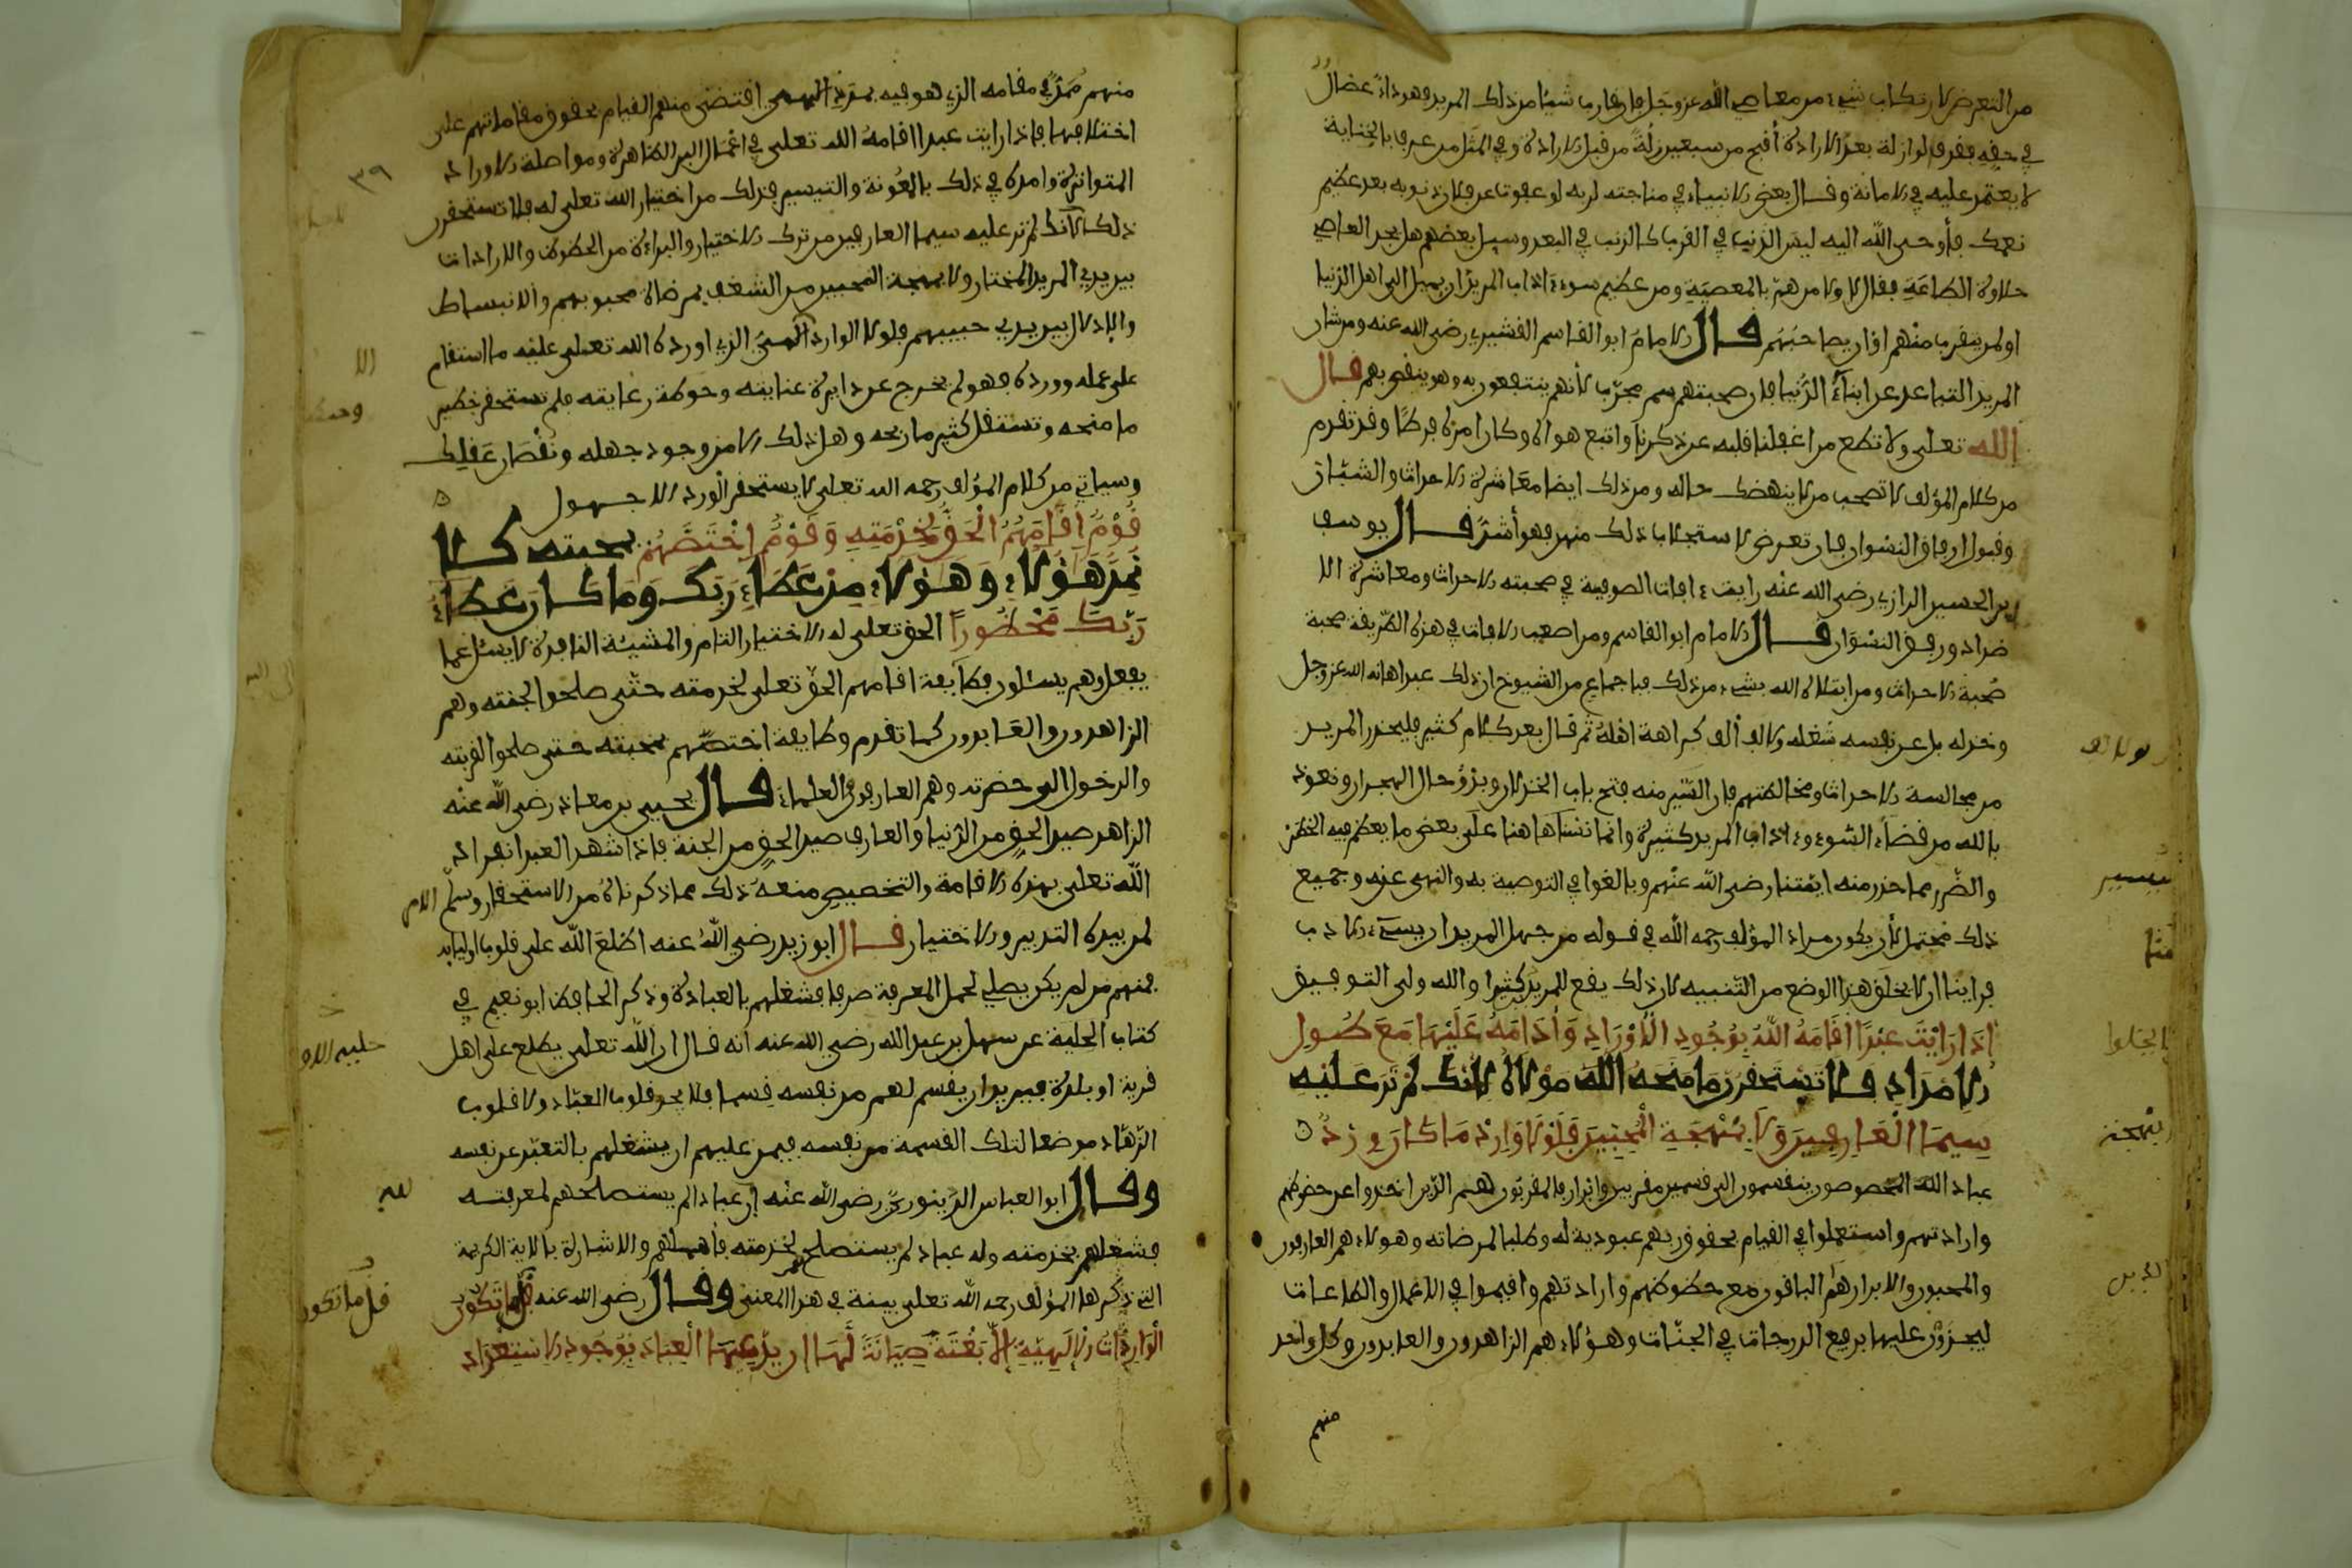 من التعرض لارتكاب شيء من معاصي الله عز وجل فإن قارب شيئا من ذلك المريد فهو داء عضال
في حقه فقد قالوا زلة بعد الارادة أقبح من سبعين زلة من قبل الارادة وفي المثل من عرف بالخيانة
لا يعتمد عليه في الامانة وقال بعض الانبياء في مناجته لربه لو عفوت عن فلان ذنوبه بعد عظيم
نعمك فأوحى الله اليه ليس الذنب في القرب كالذنب في البعد وسيل بعضهم هل يجد العاصي
حلاوة الطاعة فقال لا ولا من هم بالمعصية ومن عظيم سوء اداب المريد ان يميل الى اهل الدنيا
او لم يتقرب منهم او ان يصاحبهم قال الامام ابو القاسم القشيري رضي الله عنه ومن شان
المريد التباعد عن ابناء الدنيا فان صحبتهم سم مجرب لأنهم ينتفعون به وهو ينقص بهم قال
الله تعلى ولا تطع من اغفلنا قلبه عن ذكرنا واتبع هواه وكان امره فرطا وقد تقدم
من كلام المؤلف لا تصحب من لا ينهضك حاله ومن ذلك ايضا معاشرة الاحداث والشبان
وقبول ارفاق النسوان فان تعرض لاستجلاب ذلك منهن فهو أشر قال يوسف
ابن الحسين الرازي رضي الله عنه رايت ءافات الصوفية في صحبته الاحداث ومعاشرة الا
ضداد ورفق النسوان قال الامام ابو القاسم ومن اصعب الافات في هذه الطريقة صحبة
صحبة الاحداث ومن ابتلاه الله بشيء من ذلك فباجماع من الشيوخ ان ذلك عبد اهانه الله عز وجل
وخذله بل عن نفسه شغله ولالف ألف كرامة اهله ثم قال بعد كلام كثير فليحذر المريد
من مجالسة الاحداث ومخالطتهم فان اليسير منه فتح باب الخذلان وبدو حال الهجران ونعوذ
بالله من قضاء السوء وءاداب المريد كثيرة وانما نبهنا هاهنا على بعض ما يعظم فيه الخطر
والضرر مما حذر منه ايمتنا رضي الله عنهم وبالغوا في التوصية به والنهي عنه وجميع
ذلك محتمل لأن يكون مراد المؤلف رحمه الله في قوله من جهل المريد ان يسيء الادب
فراينا ان لا يخلو هذا الوضع من التنبيه لان ذلك يقع للمريد كثيرا والله ولي التوفيق
اذا رايت عبدا اقامه الله بوجود الاوراد وادامه عليها مع طول
الامداد فلا تستحقرن ما منحه الله مولاه لانك لم تر عليه
سيما العارفين ولا بهجة المحبين فلولا وارد ما كان ورد
عباد الله المخصوصون ينقسمون الى قسمين مقربين وابرار فالمقربون هم الذين اخذوا عن حضوضهم
واراداتهم واستعملوا في القيام بحقوق ربهم عبودية له وطلبا لمرضاته وهؤلاء هم العارفون
والمحبون والابرار هم الباقون مع حضوضهم واراداتهم واقيموا في الاعمال والطاعات
ليجزون عليها برفع الدرجات في الجنات وهؤلاء هم الزاهدون والعابدون وكل واحد
منهم
يسير
الجلوا
بهجة
منهم ممد في مقامه الذي هو فيه بمدد الهي اقتضى منهم القيام بحقوق مقاماتهم على
اختلافها فاذا رايت عبدا اقامه الله تعلى في اعمال البر الظاهرة ومواصلة الاوراد
المتواترة وامده في ذلك بالعونة والتيسير فذلك من اختيار الله تعلى له فلا تستحقرن
ذلك لأنك لم تر عليه سيما العارفين من ترك الاختيار والبراءة من الحظوظ والارادات
بين يدي المريد المختار ولا بهجة المحبين من الشغف بمرضاة محبوبهم والانبساط
والادلال بين يدي حبيبهم فلولا الوارد الهي الذي اورده الله تعلى عليه ما استقام
على عمله وورده فهو لم يخرج عن دايرة عنايته وحوطة رعايته فلم تستحقر خطير
ما منحه وتستقل كثير ما ربحه وهل ذلك الا من وجود جهله ونقصان عقلك
وسياتي من كلام المؤلف رحمه الله تعلى لا يستحقر الورد الا جهول
قوم اقامهم الحق لخدمته وقوم اختصهم بمحبته كلا
نمد هؤلاء وهؤلاء من عطاء ربك وما كان عطاء
ربك محظورا الحق تعلى له الاختيار التام والمشيئة النافذة لا يسئل عما
يفعل وهم يسئلون فطايفة اقامهم الحق تعلى لخدمته حتى صلحوا لجنته وهم
الزاهدون والعابدون كما تقدم وطايفة اختصهم بمحبته حتى صلحوا لقربته
والدخول الى حضرته وهم العارفون العلماء قال يحيى بن معاذ رضي الله عنه
الزاهد صيد الحق من الدنيا والعارف صيد الحق من الجنة فاذا شهد العبد انفراد
الله تعلى بهذه الاقامة والتخصيص منعه ذلك مما ذكرناه من الاستحقار وسلم الامر
لمن بيده التدبير والاختيار قال ابو زيد رضي الله عنه اطلع الله على قلوب اوليايه
فمنهم من لم يكن يصلح لحمل المعرفة صرفا فشغلهم بالعبادة وذكر الحافظ ابو نعيم في
كتاب الحلية عن سهل بن عبد الله رضي الله عنه انه قال ان الله تعلى يطلع على اهل
قرية او بلدة فيريد ان يقسم لهم من نفسه قسما فلا يجد قلوب العباد ولا قلوب
الزهاد موضعا لتلك القسمة من نفسه فيمن عليهم ان يشغلهم بالتعبد عن نفسه
وقال ابو العباس الدينوري رضي الله عنه ان عبادا لم يستصلحهم لمعرفته
فشغلهم بخدمته وله عباد لم يستصلح لخدمته فأهملهم والاشارة بالاية الكريمة
التي ذكرها المؤلف رحمه الله تعلى بينة في هذا المعنى وقال رضي الله عنه قل ما تكون
الواردات الالهية الا بغتة صيانة لها ان يدعيها العباد بوجود الاستعداد
٣٩
قل ما تكون